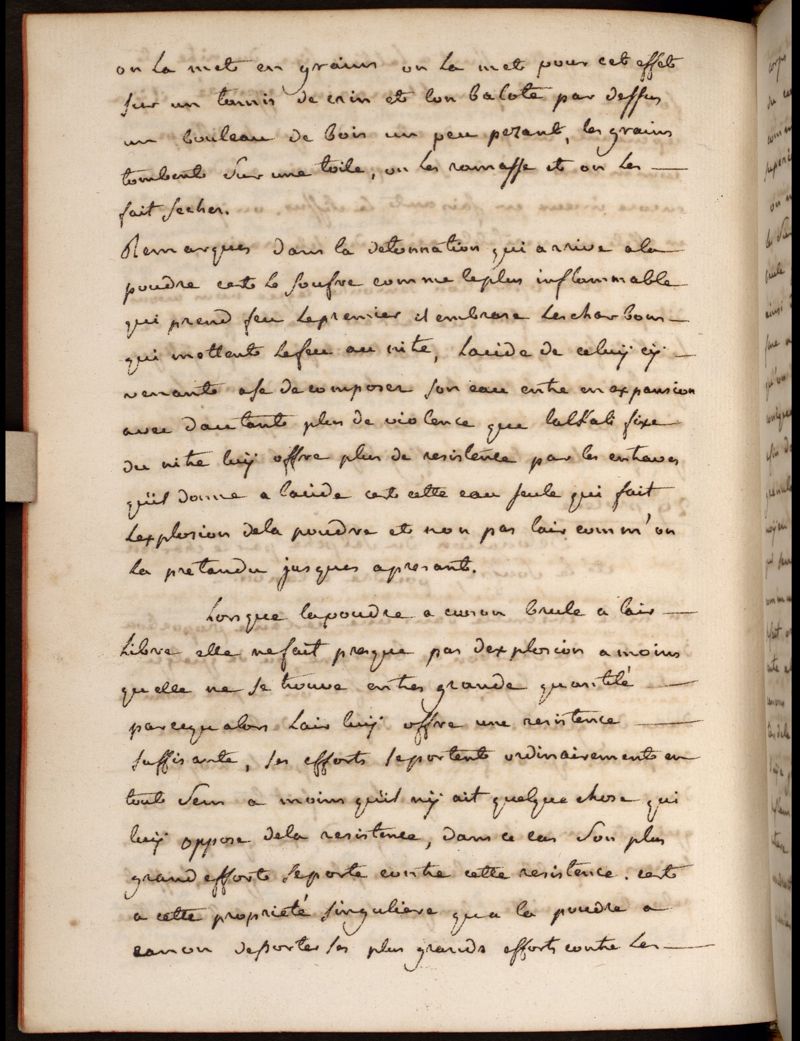 on la met en grains on la met pour cet effet
sur un tamis de crin et lon balote par dessus
un rouleau de bois un peu pezant, les grains
tombent sur une toile, on les ramasse et on les —
fait secher.
Remarques dans la detonnation qui arrive a la
poudre cest le soufre comme le plus inflammable
qui prend feu le premier il embrase les charbons —
qui mettent le feu au nitre, lacide de celuÿ cÿ —
venant a se decomposer son eau entre en expansion
avec dautant plus de violence que lalkali fixe
du nitre luÿ offre plus de resistence par les entaves
quil donne a lacide cest cette eau seule qui fait
lexplosion dela poudre et non pas lair comm'on
la pretendu jusques apresent.
Lorsque lapoudre a canon brule a lair —
libre elle ne fait presque pas dexplosion a moins
quelle ne se trouve en tres grande quantité —
parcequalors lair luÿ offre une resistence —
suffisante, ses efforts se portent ordinairement en
tout sens a moins quil nÿ ait quelque chose qui
luÿ oppose dela resistence, dans ce cas son plus
grand effort se porte contre cette resistence. cest
a cette propriété singuliere qua la poudre a
canon deporter ses plus grands efforts contre les —